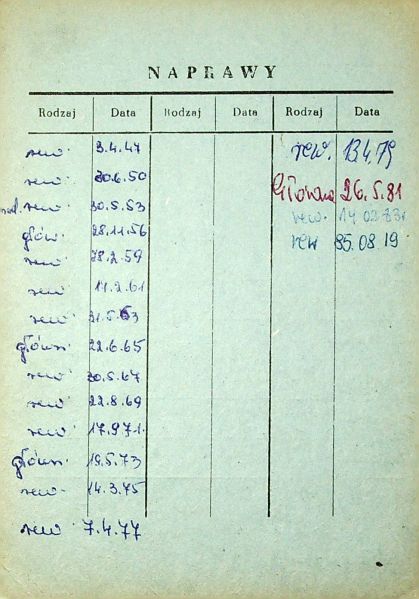 NAPRAWY
Rodzaj Data Rodzaj Data Rodzaj Data
rew. 3.4.47
rew. 30.6.50
rew. 30.5.53
głów. 28.11.56
rew. 28.2.59
rew. 14.2.61
rew. 31.5.63
główn. 22.6.65
rew. 30.5.67
rew. 22.8.69
rew. 17.9.71.
główn. 19.5.73
rew. 14.3.75
rew. 7.4.77
rew. 13.4.79
Główna 26.5.81
rew. 14.02.83r
rew 85.08.19